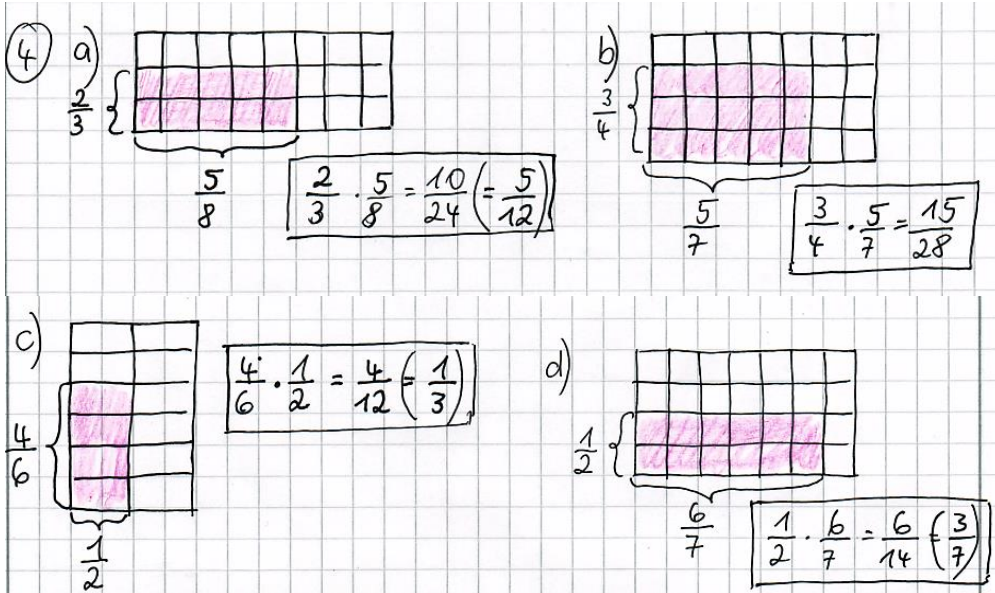 4 a)
2/3
5/8
2/3 · 5/8 = 10/24 (= 5/12)
b)
3/4
5/7
3/4 · 5/7 = 15/28
c)
4/6
1/2
4/6 · 1/2 = 4/12 (= 1/3)
d)
1/2
6/7
1/2 · 6/7 = 6/14 (= 3/7)